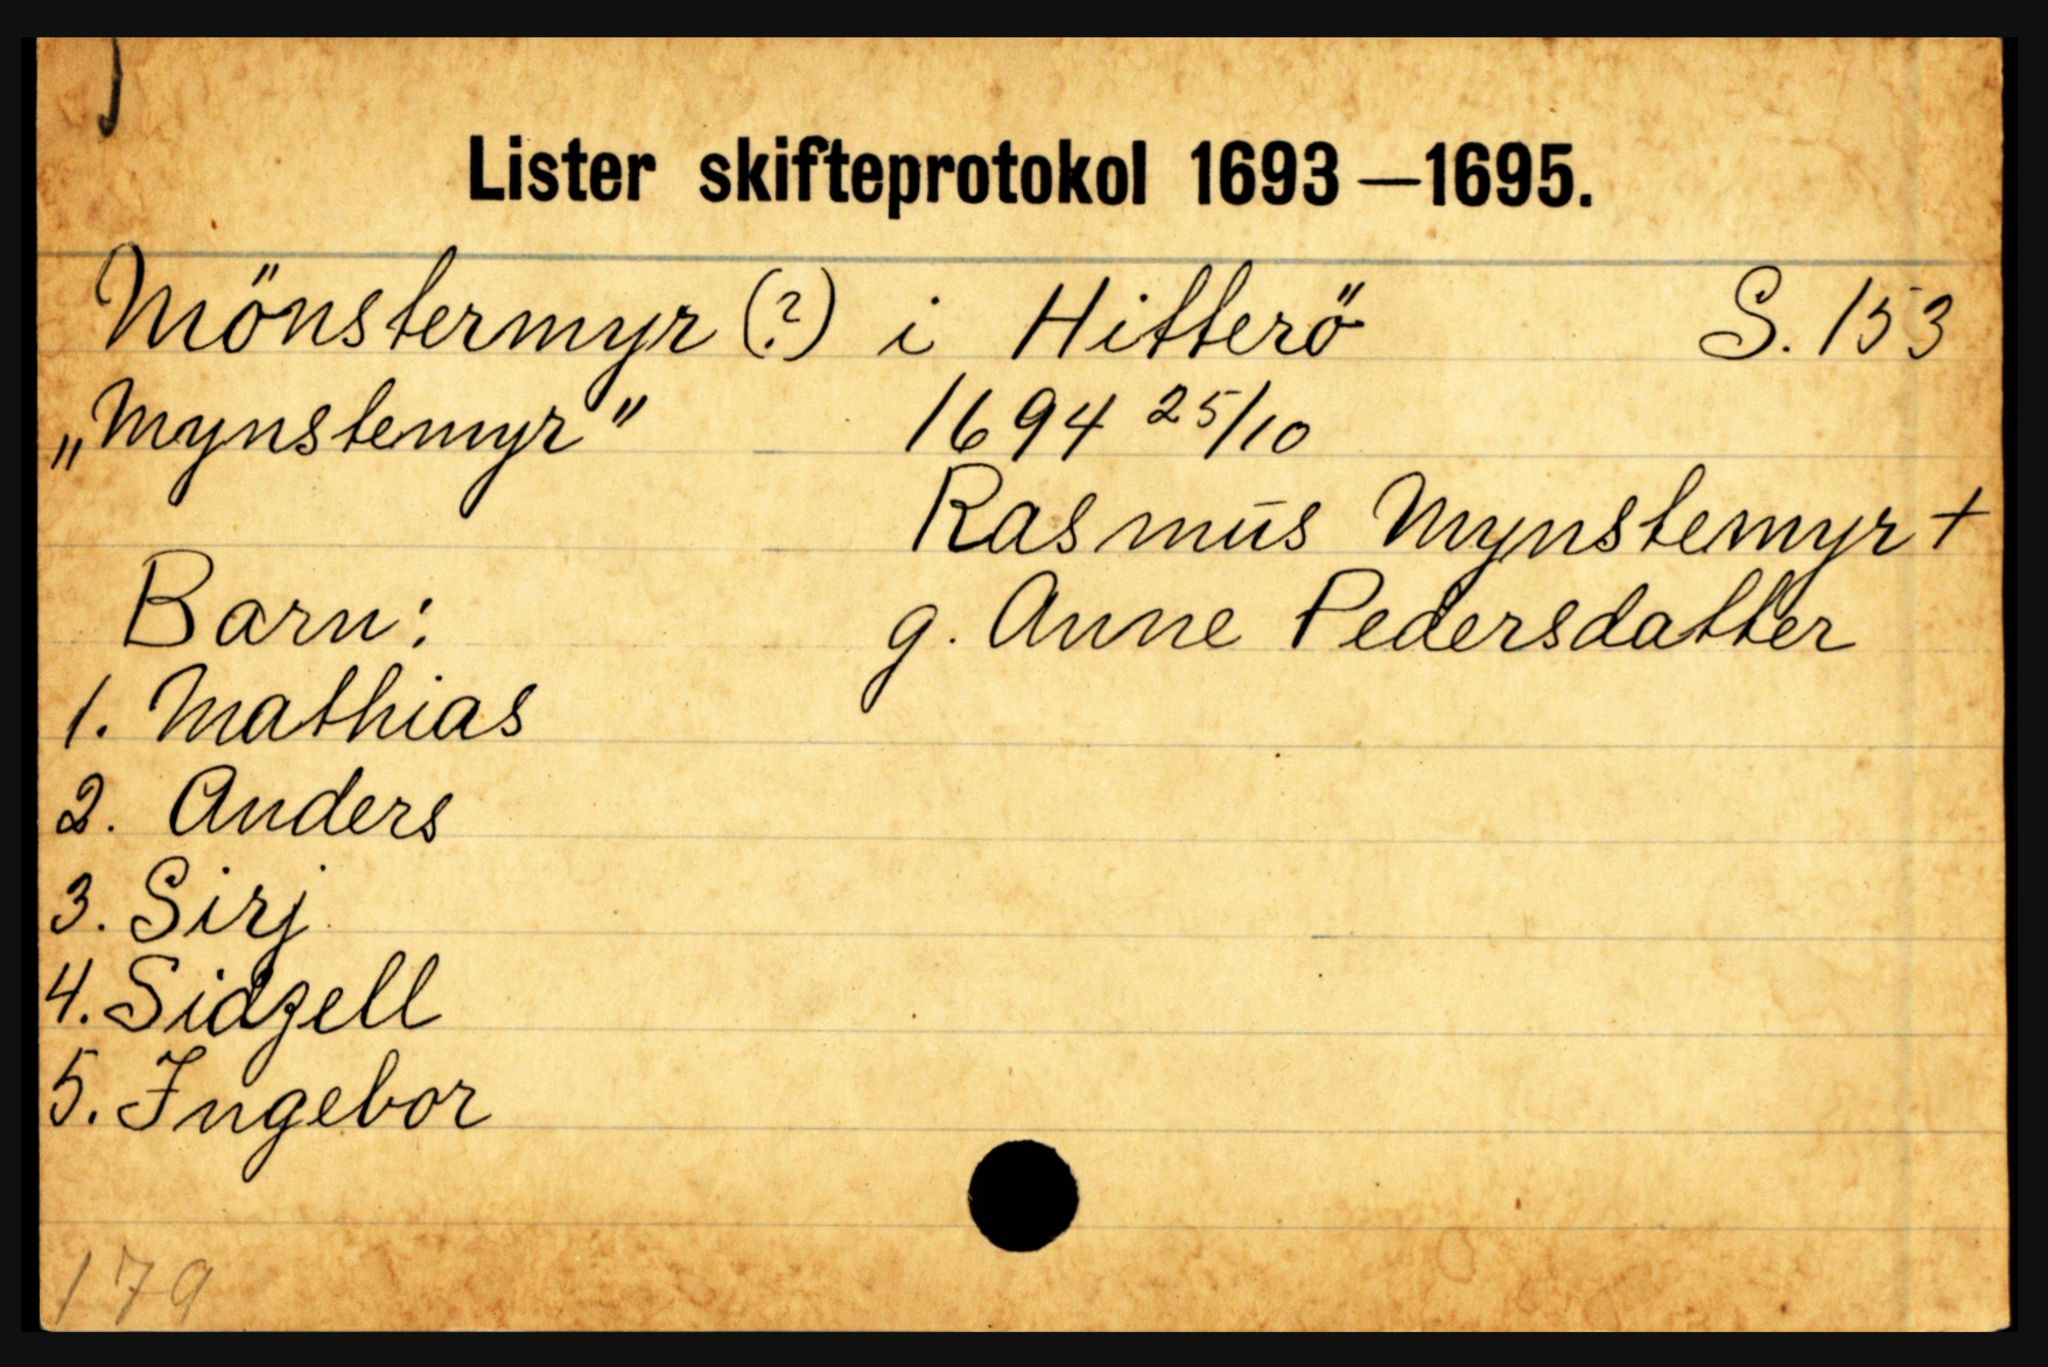 Lister skifteprotokol 1693—1695.
Mönstermyr (?) i Hitterö S. 153
„Mynstemyr" 1694 25/10
Rasmus Mynstemyr +
Barn: g. Anne Pedersdatter
1. Mathias
2. Anders
3. Sirj
4. Sidzell
5. Ingebor
179